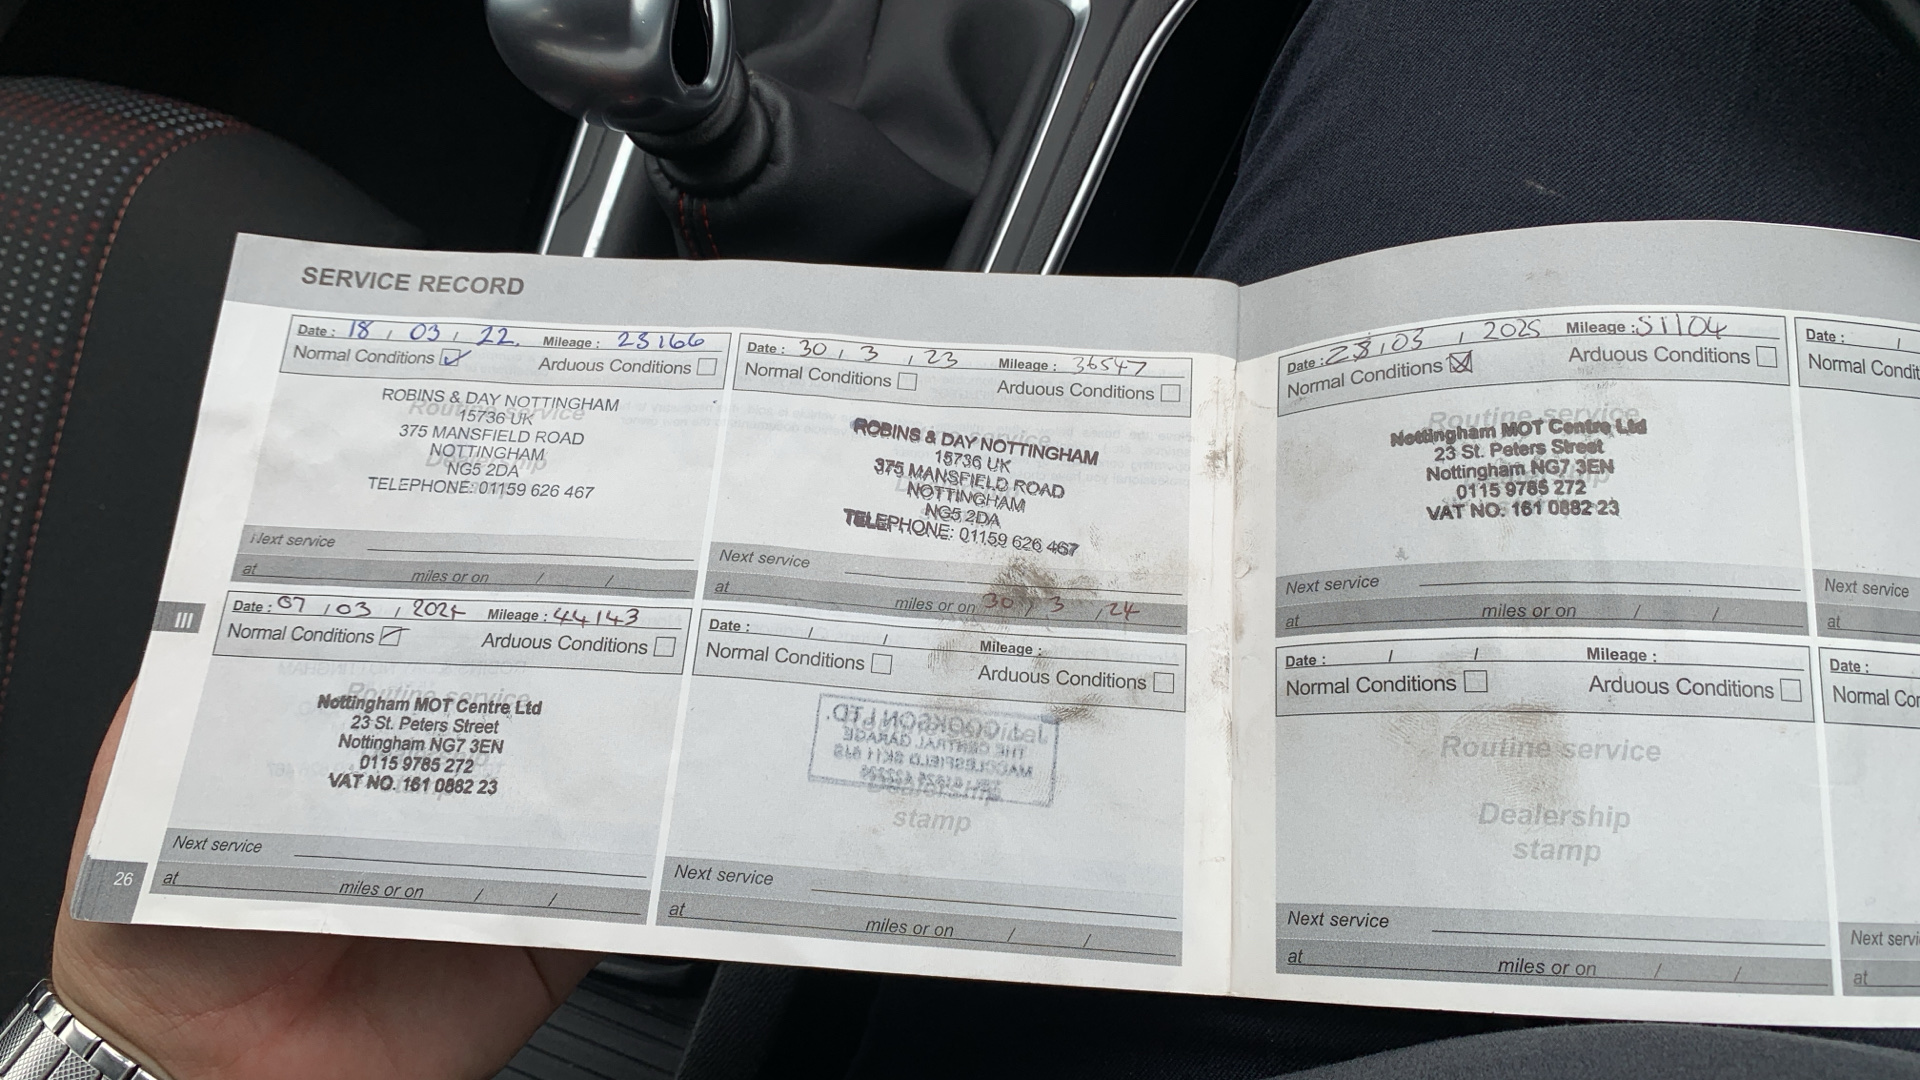 SERVICE RECORD
Date : 18 / 03 / 22. Mileage : 23166
Normal Conditions Arduous Conditions
Routine service
ROBINS & DAY NOTTINGHAM
15736 UK
375 MANSFIELD ROAD
NOTTINGHAM
NG5 2DA
TELEPHONE: 01159 626 467
Next service
at miles or on / /
Date : 30 / 3 / 23 Mileage : 36547
Normal Conditions Arduous Conditions
ROBINS & DAY NOTTINGHAM
15736 UK
375 MANSFIELD ROAD
NOTTINGHAM
NG5 2DA
TELEPHONE: 01159 626 467
Next service
at miles or on 30 / 3 / 24
III
Date : 07 / 03 / 2024 Mileage : 44143
Normal Conditions Arduous Conditions
Routine service
Nottingham MOT Centre Ltd
23 St. Peters Street
Nottingham NG7 3EN
0115 9785 272
VAT NO. 161 0882 23
Next service
at miles or on / /
26
Date : / / Mileage :
Normal Conditions Arduous Conditions
COOKSON LTD.
THE CENTRAL GARAGE
MACCLESFIELD SK11
stamp
Next service
at miles or on / /
Date : 03 / 2025 Mileage : 51104
Normal Conditions Arduous Conditions
Routine service
Nottingham MOT Centre Ltd
23 St. Peters Street
Nottingham NG7 3EN
0115 9785 272
VAT NO. 161 0882 23
Next service
at miles or on / /
Date : / / Mileage :
Normal Conditions Arduous Conditions
Routine service
Dealership
stamp
Next service
at miles or on / /
Date : /
Normal Condit
Next service
at
Date :
Normal Co
Next servi
at